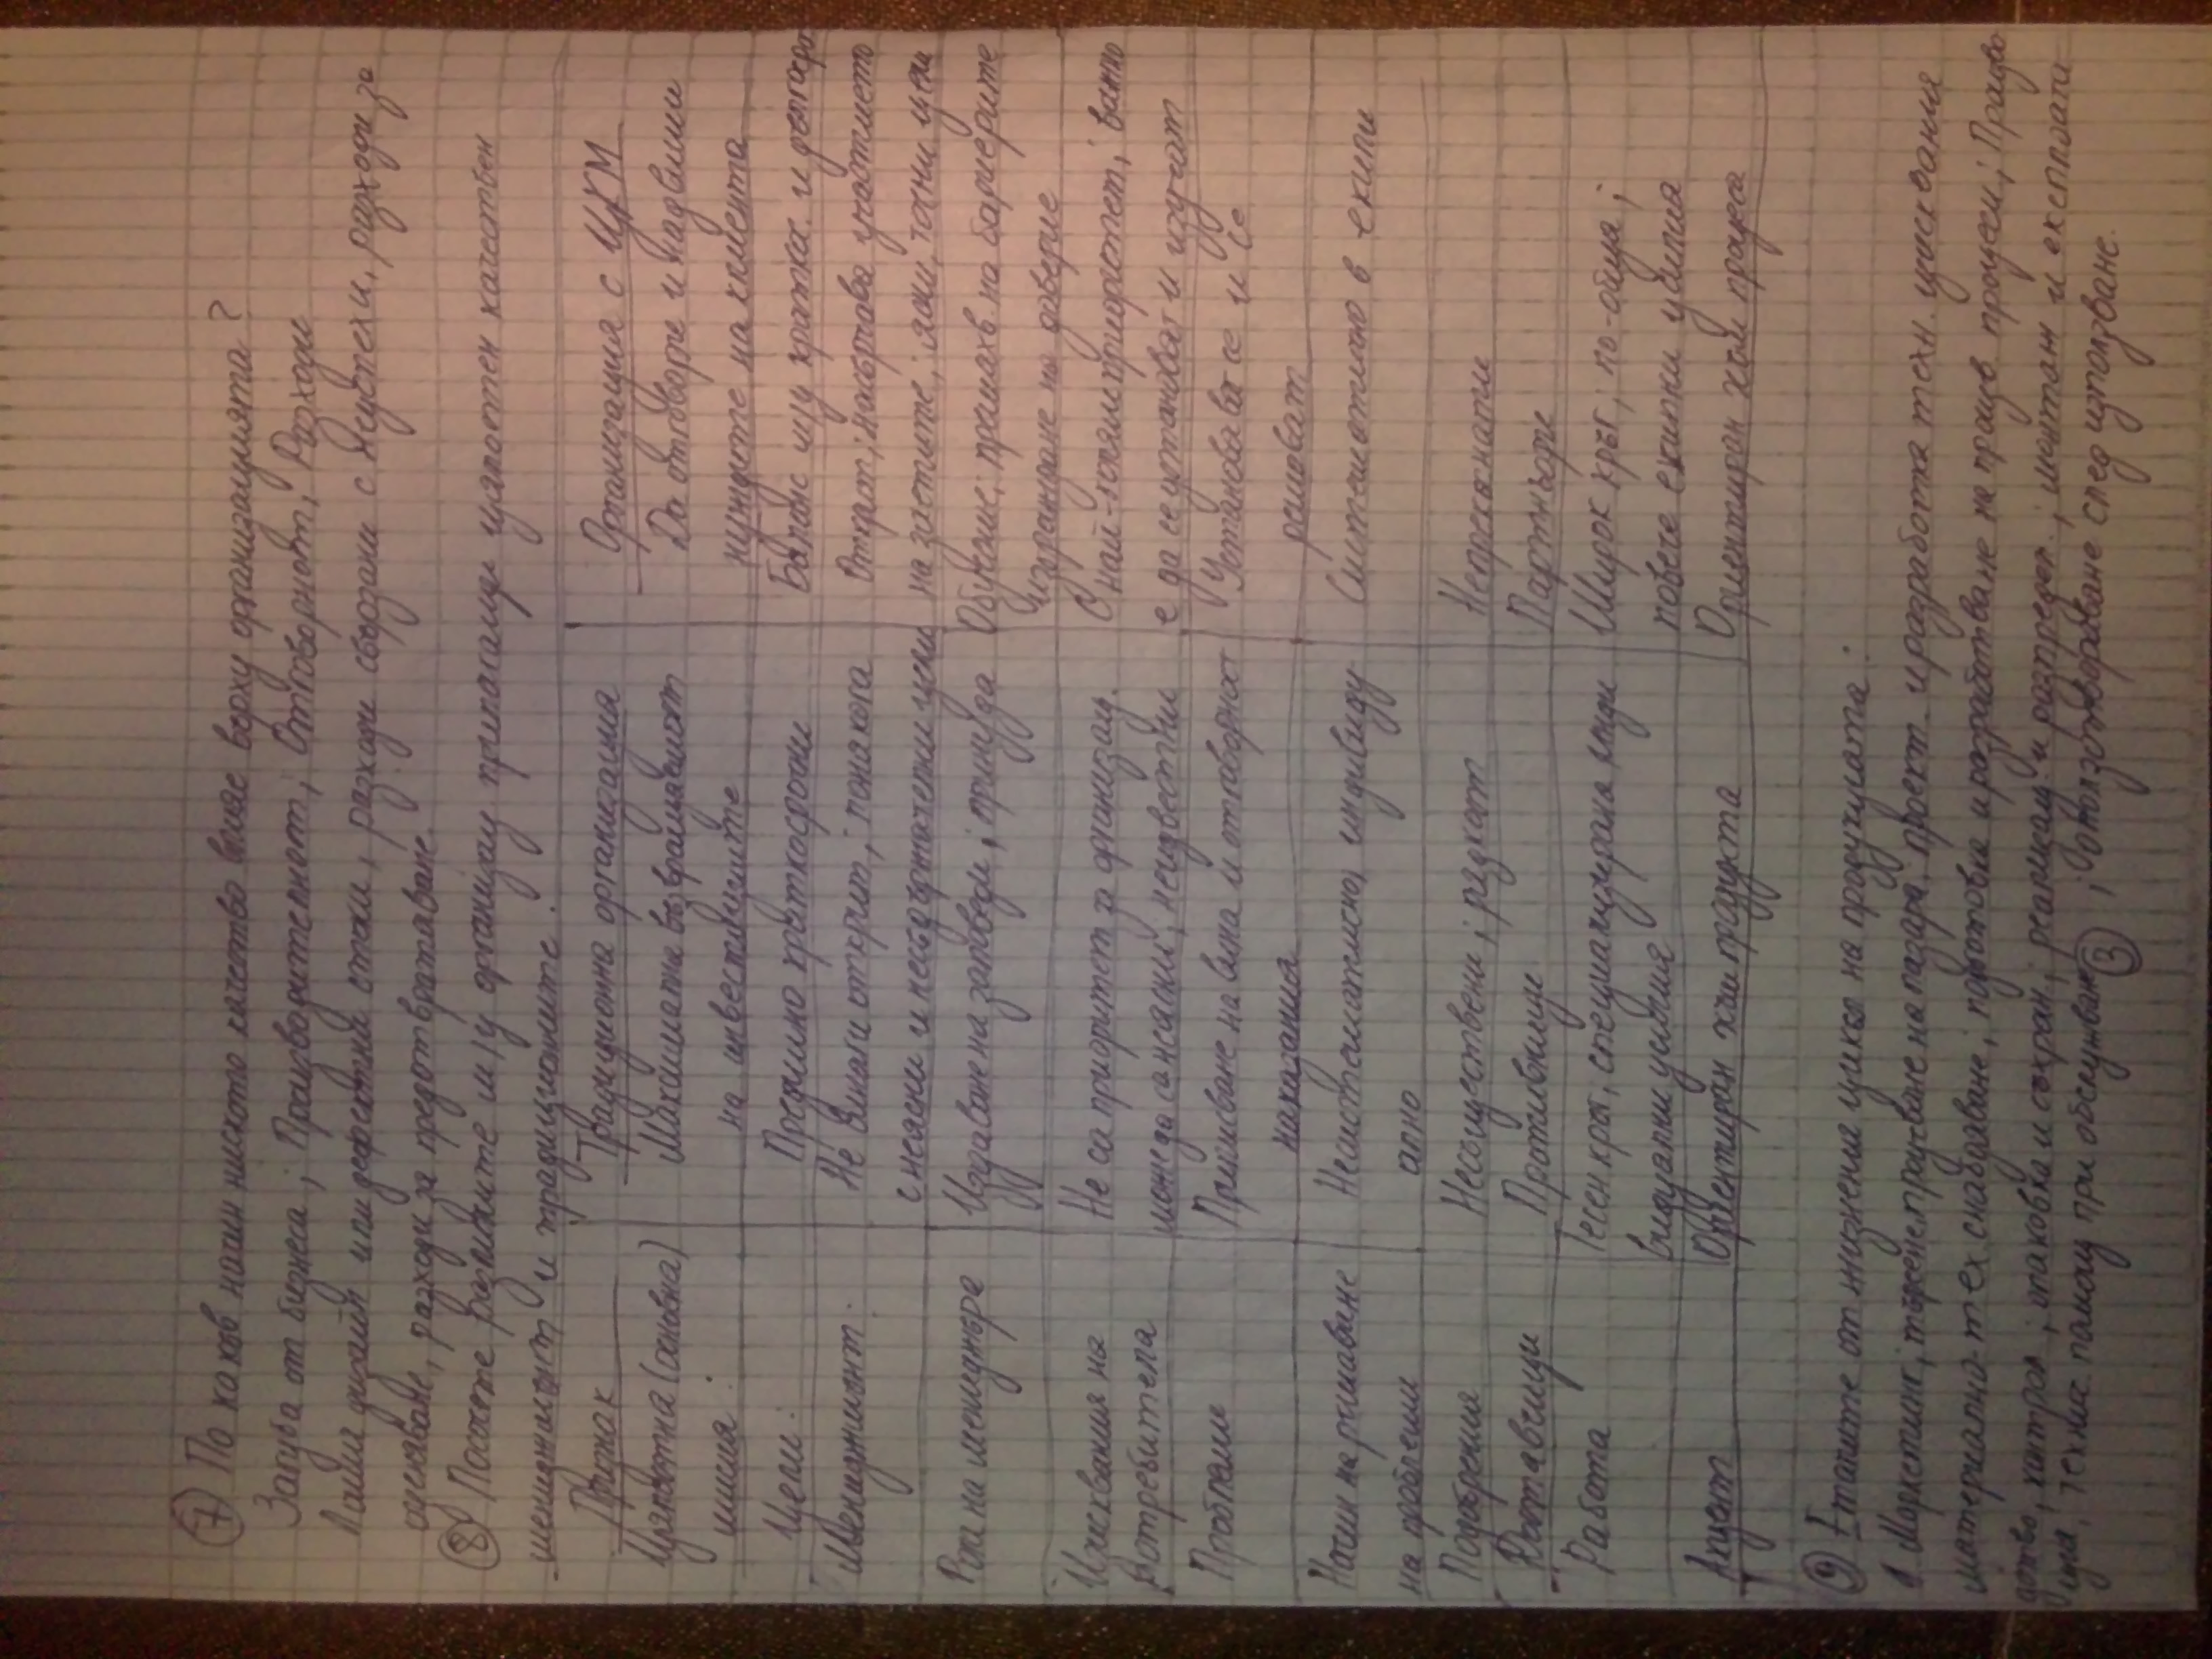 7 По какъв начин ниското качество влияе върху организацията?
Загуба от бизнеса; Производителност; Отговорност; Разходи
Лоши дизайн или дефектни стоки, разходи свързани с неуспехи, разходи за
оценяване, разходи за предотвратяване.
8 Посочете разликите м/у организац. прилагащи цялостен качествен
мениджмънт и традиционните.
Признак Традиционна организация Организация с ЦКМ
Цялостна (основна) Максимална възвращаемост Да отговори и надвиши
мисия. на инвестициите нуждите на клиента
Цели. Предимно краткосрочни Баланс м/у краткос. и дългоср
Мениджмънт. Не винаги открит; понякога Открит; насърчава участието
с неясни и необозначени цели на заетите; ясни, точни цели
Рол на мениджъра Издаване на заповеди; принуда Обучение; премахв. на бариерите
изграждане на доверие
Изисквания на Не са приоритет за организац. С най-голям приоритет; важно
потребителя може да са неясни; неизвестни е да се установят и изучат
Проблеми Приписване на вина и отговорност Установяват се и се
наказания решават
Начин на решаване Несистематично, индивиду Систематично в екипи
на проблеми ално
Подобрения Несъществени; рядкост Непрекъснати
Доставчици Противници Партньори
Работа Тесен кръг, специализирана инди Широк кръг; по-обща;
видуални усилия повече екипни усилия
Акцент Ориентиран към продукта Ориентиран към процеса
9 Етапите от жизнения цикъл на продукцията.
1. Маркетинг, търсене, проучване на пазара, проект. и разработка техн. изисквания
материално-тех снабдяване; подготовка и разработване на произв процеси; Произво
дство; контрол; опаковка и съхран; реализац. и разпредел.; монтаж и експлоата
ция; технич. помощ при обслужване 3; оползотворяване след използване.